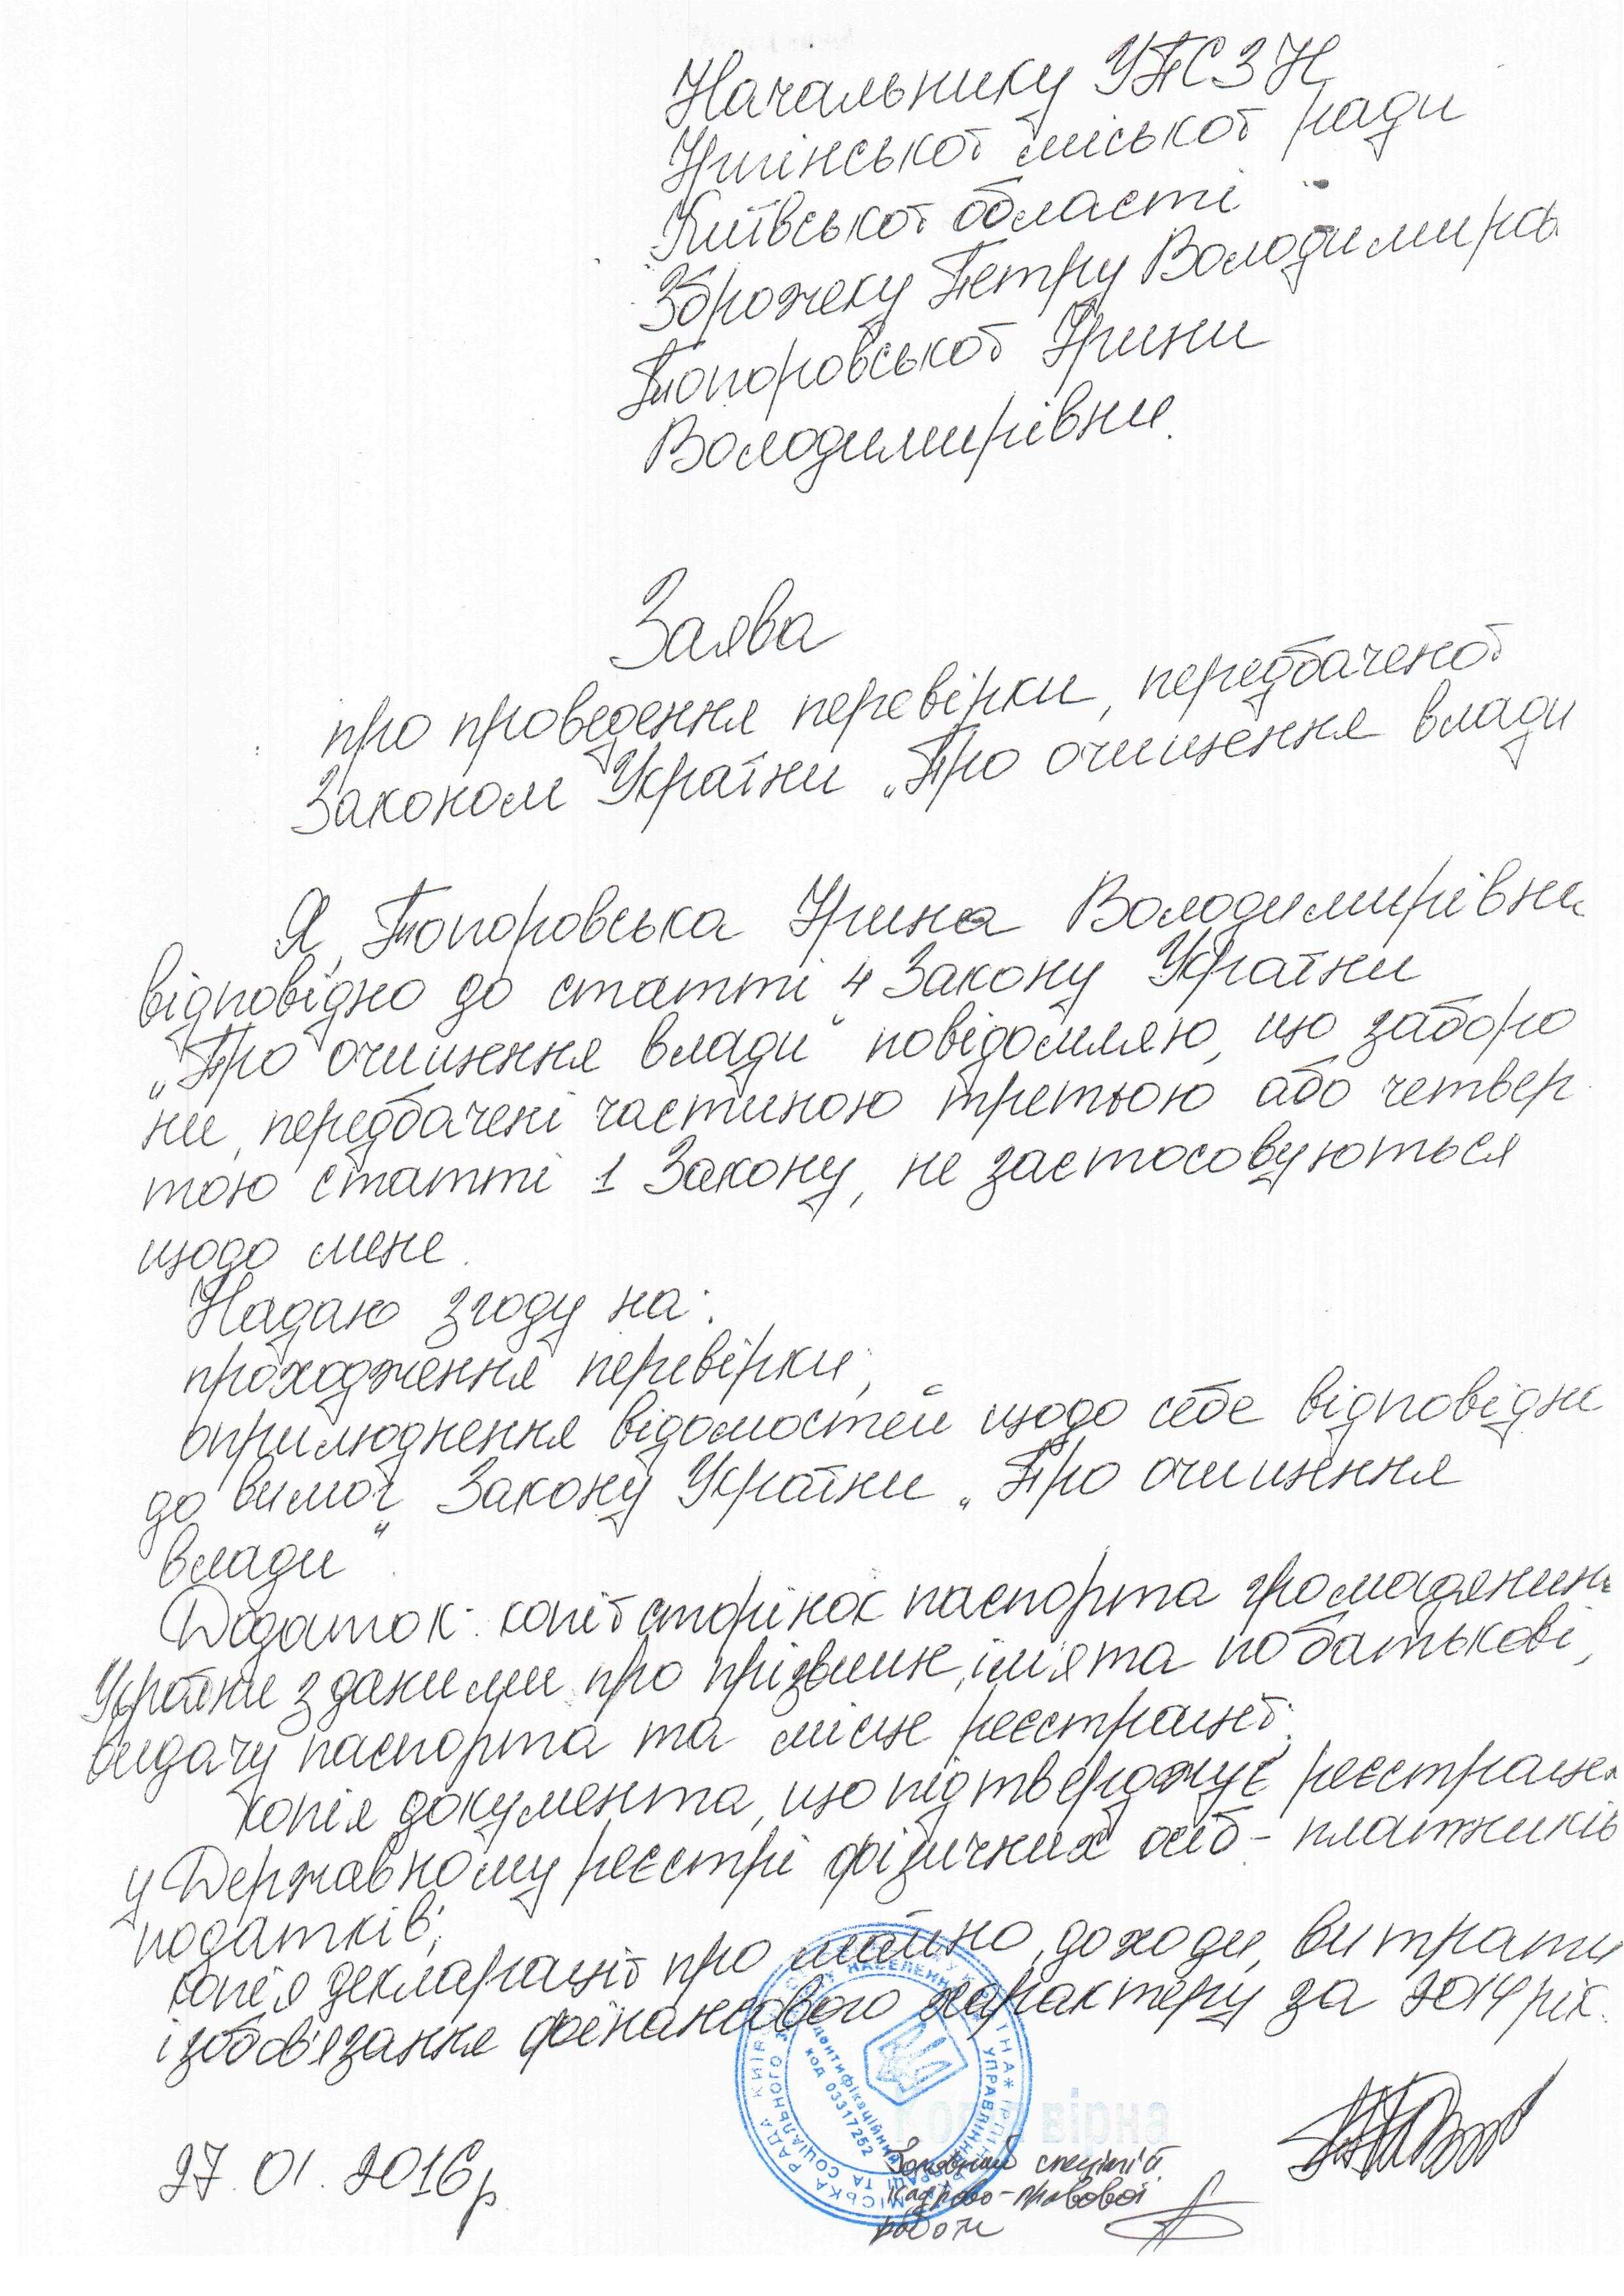 Начальнику УПСЗН
Ірпінської міської ради
Київської області
Зброжеку Петру Володимиро
Топоровської Ірини
Володимирівни.
Заява
про проведення перевірки, передбаченої
Законом України „Про очищення влади
Я, Топоровська Ірина Володимирівна
відповідно до статті 4 Закону України
„Про очищення влади" повідомляю, що заборо
ни, передбачені частиною третьою або четвер
тою статті 1 Закону, не застосовуються
щодо мене.
Надаю згоду на:
проходження перевірки;
оприлюднення відомостей щодо себе відповідн
до вимог Закону України „Про очищення
влади".
Додаток: копії сторінок паспорта громадянин
України з даними про прізвище, ім'я та по батькові,
видачу паспорта та місце реєстрації;
копія документа, що підтверджує реєстраці
у Державному реєстрі фізичних осіб - платників
податків;
копія декларації про майно, доходи, витрати
і зобов'язання фінансового характеру за 2014 рік.
Ідентифікаційний
код 03317252
Копія вірна
27.01.2016р.
Головний спеціаліст
кадрово-правової
роботи